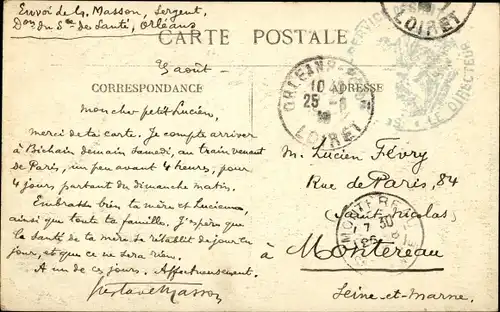 Envoi de G. Masson, Sergent,
Don du Sce de Santé, Orléans
CARTE POSTALE
CORRESPONDANCE
ADRESSE
25 août -
Mon cher petit Lucien,
Merci de ta carte. Je compte arriver
à Bichain demain Samedi, au train venant
de Paris, un peu avant 4 heures, pour
4 jours partant du dimanche matin.
Embrasse bien ta mère et Lucienne,
ainsi que toute ta famille. J'espère que
la santé de ta mère se rétablit de jour en
jour, et que ce ne sera rien.
A un de ces jours. Affectueusement.
Gustave Masson
M. Lucien Févry
Rue de Paris, 84
(Saint-Nicolas)
à Montereau
Seine-et-Marne.
LOIRET
SERVICE
LE DIRECTEUR
ORLEANS
25
LOIRET
MONTEREAU
7 30
25